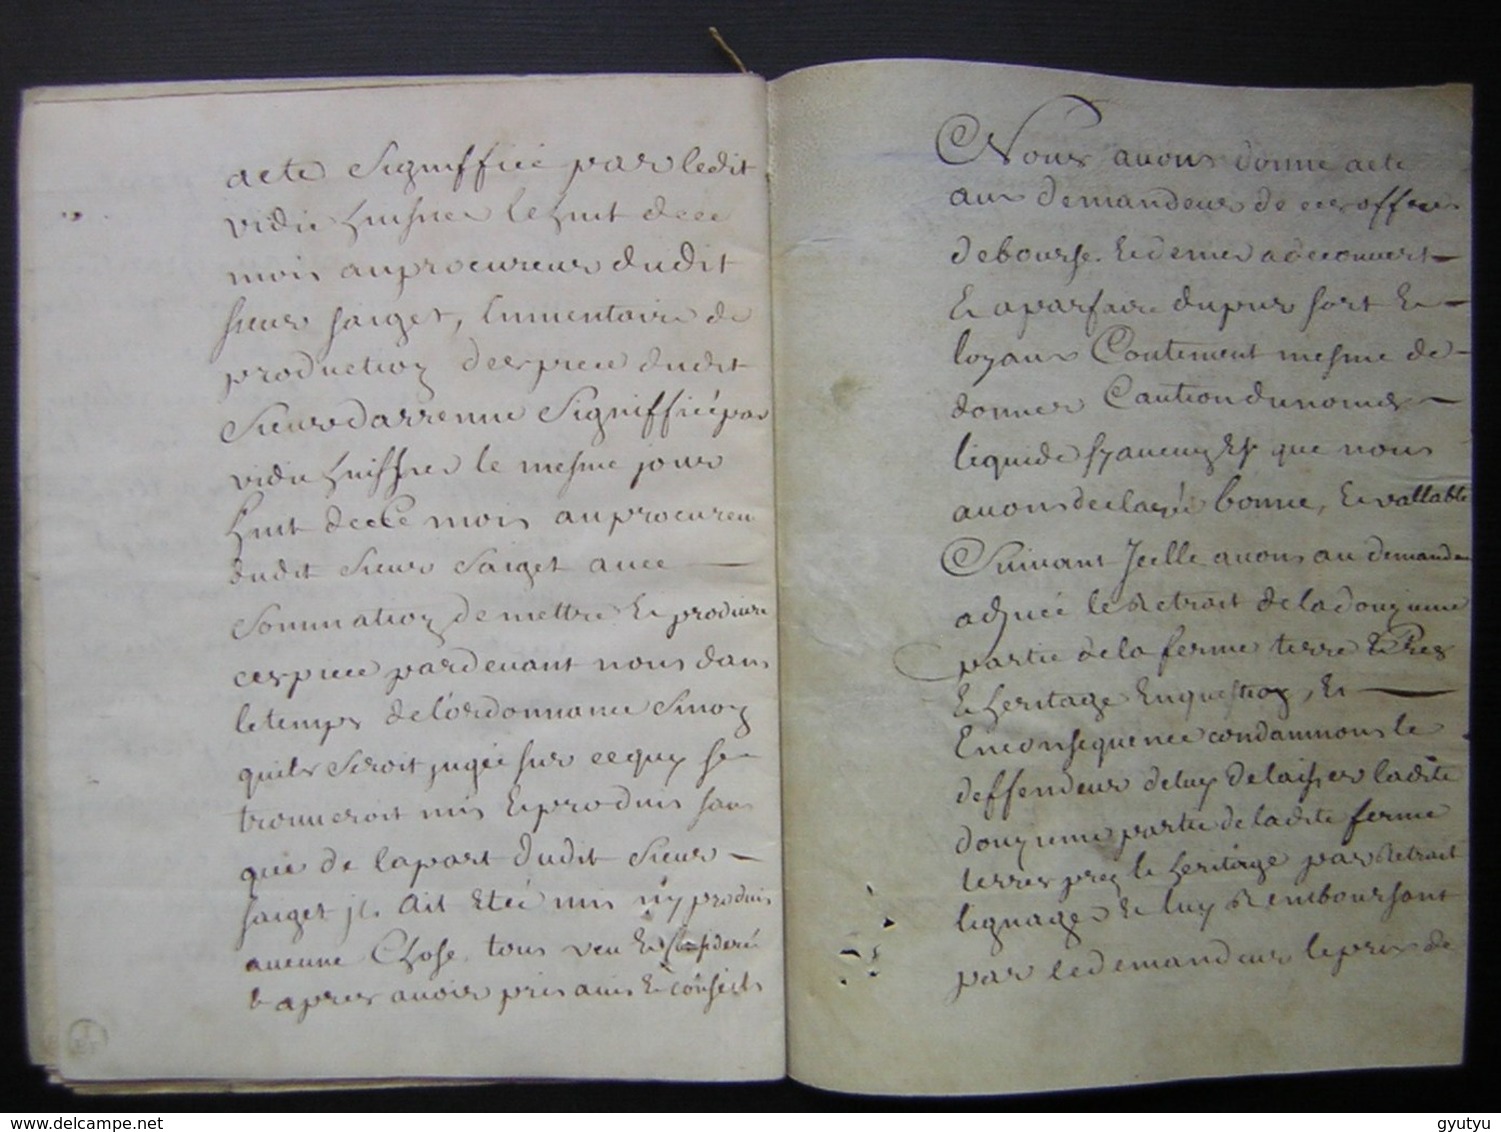 acte Signiffié par ledit
vidie huissier le huit dece
mois au procureur dudit
sieur saiget, Linventaire de
production des piece dudit
Sieur darrenne Signiffié par
vidie huissier le mesme jour
huit de Ce mois au procureur
dudit Sieur Saiget avec
Sommation de mettre Et produire
ces piece pardevant nous dans
le temps de l'ordonnance Sinon
quil Seroit jugée sur ce quy se
trouveroit mis Et produit sans
que de la part dudit Sieur
saiget il Ait Etéé mis n'y produit
aucune Chose, tout veu Et Consideré
Et apres avoir pris avis Et conseils
Nous avons donné acte
au demandeur de ces offres
de bourse. Et denier a decouvert
Et a parfaire du pur sort Et
loyaux Coutement mesme de
donner Caution du nomer
liquide sy aucun Est que nous
avons declarée bonne, Et vallable
Suivant Jcelle avons au demandeur
adjugé le Retrait de la douzieme
partie de la ferme terre Et Prez
Et heritage En question, Et
En consequence condamnons le
deffendeur de luy delaisser ladite
douzieme partie de ladite ferme
terres prez Et heritage par Retrait
lignager Et luy Remboursant
par le demandeur le prix de
www.delcampe.net
gyutyu